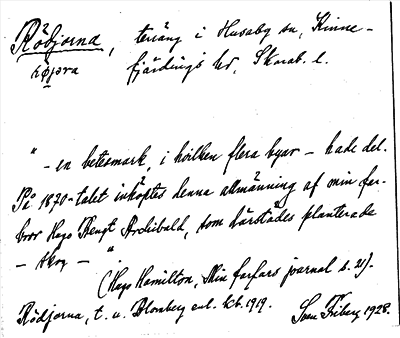 Rödjorna, terräng i Husaby sn, Kinne-
röjơra fjärdings hd, Skarab. l.
"- en betesmark, i hvilken flera byar - hade del.
På 1870-talet inköptes denna allmänning af min far-
bror Hugo Bengt Archibald, som härstädes planterade
- skog - ".
(Hugo Hamilton, Min farfars journal s. 21).
Rödjorna, t. v. Blomberg enl. kb. 1919. Sven Friberg 1928.